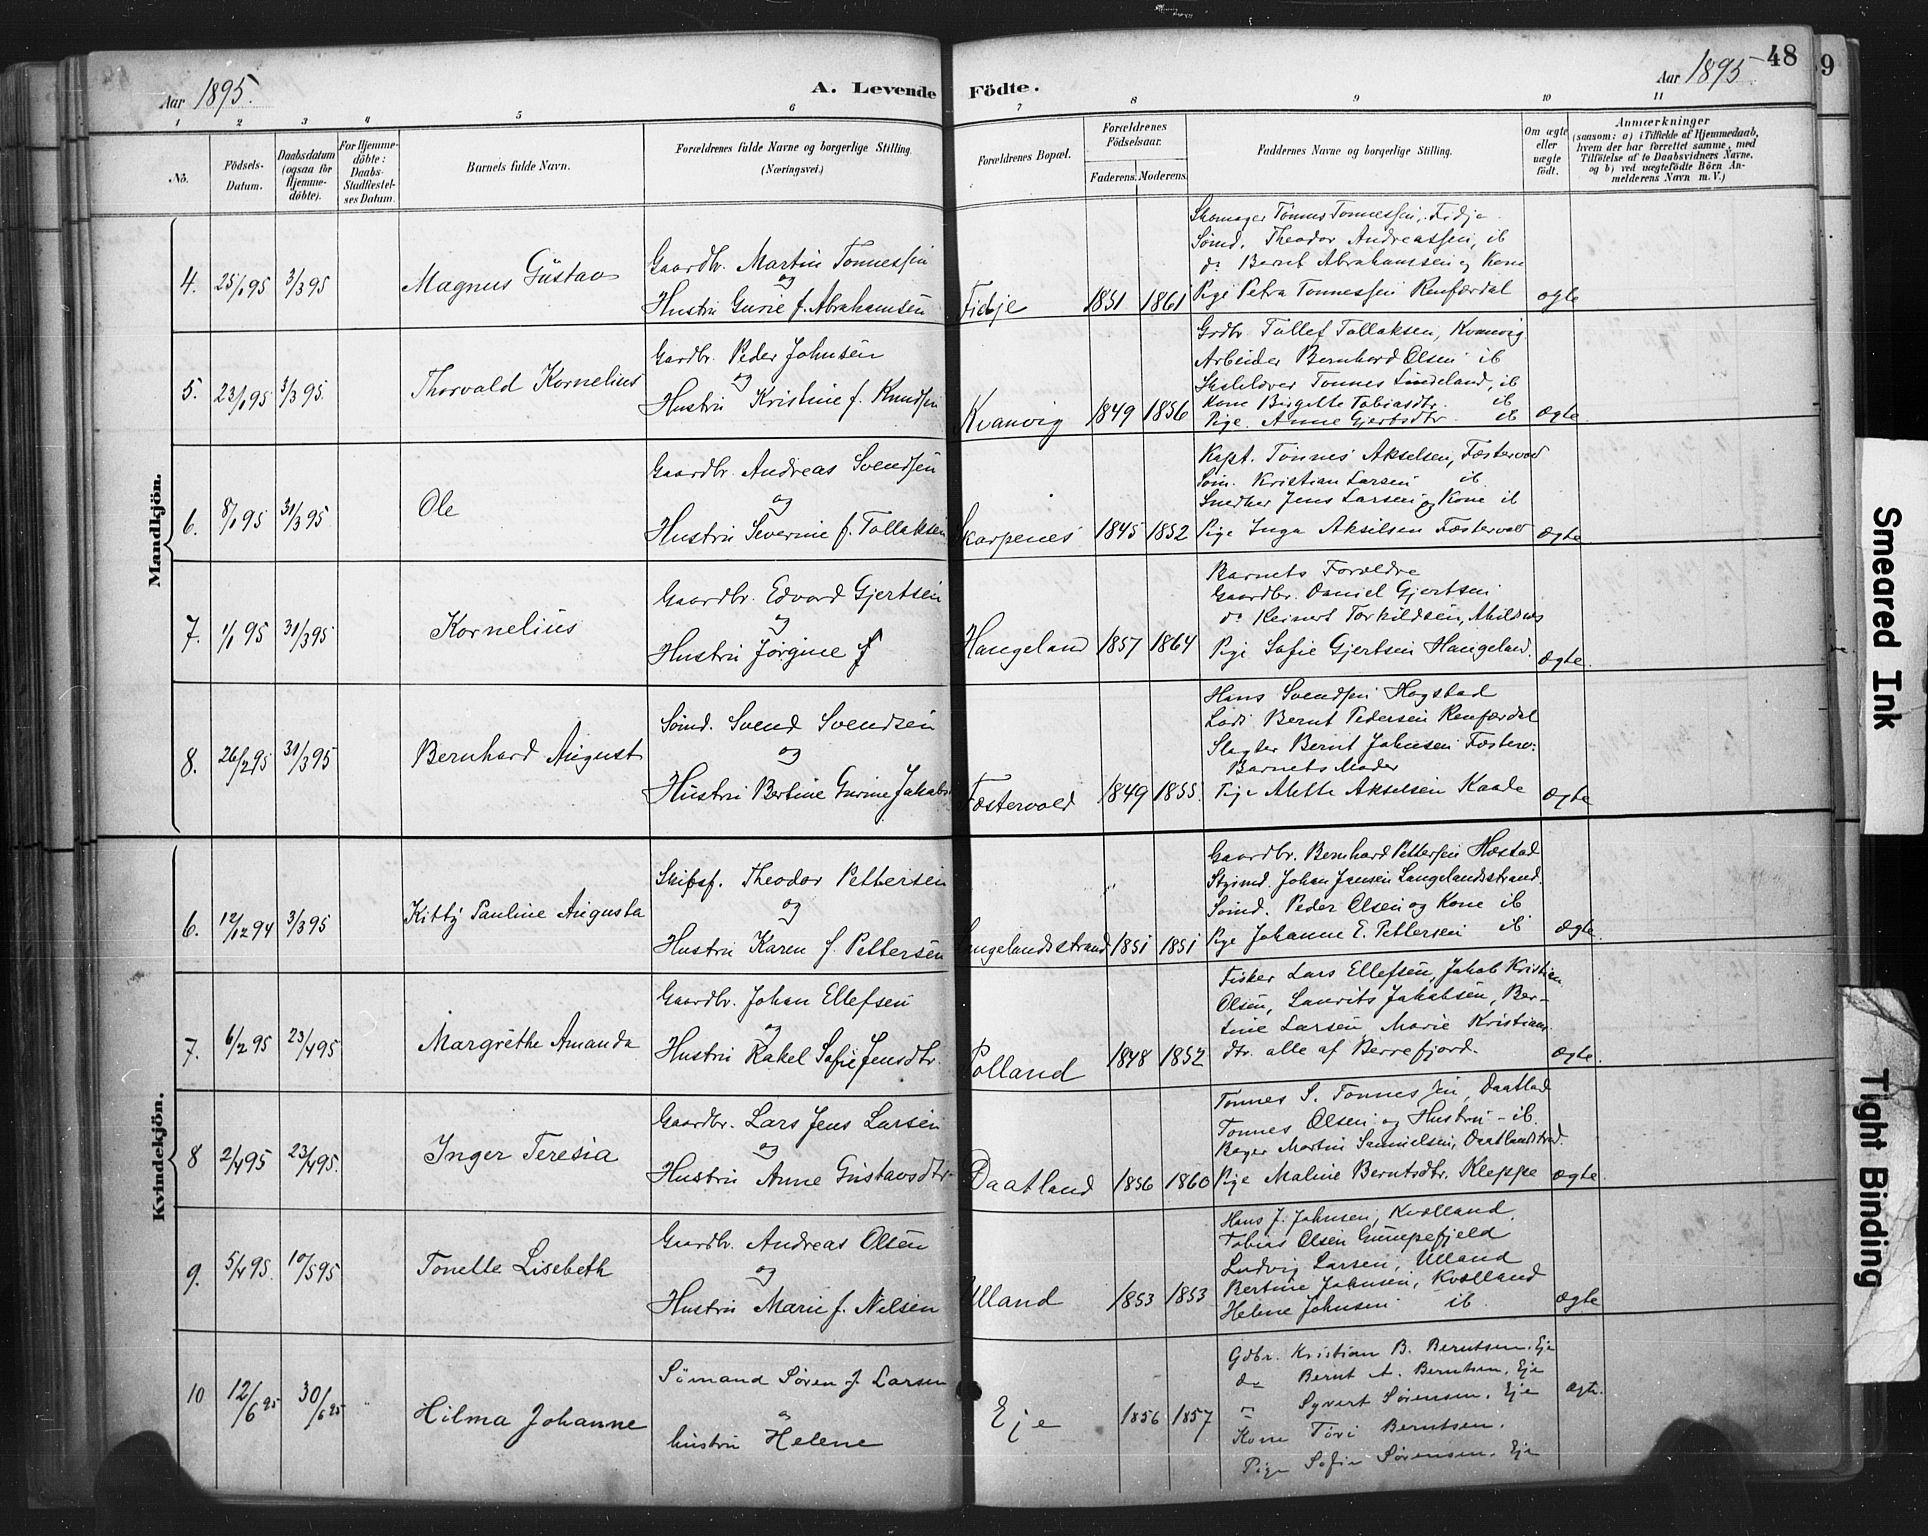 Aar 1895. A. Levende Födte. Aar 1895 48
9
1 2 3 4 5 6 7 8 9 10 11
No.
Födsels-Datum.
Daabsdatum (ogsaa for Hjemme-döbte).
For Hjemme-döbte: Daabs-Stadfæstel-ses Datum.
Barnets fulde Navn.
Forældrenes fulde Navne og borgerlige Stilling.
(Næringsvei.)
Forældrenes Bopæl.
Forældrenes Födselsaar.
Faderens. Moderens.
Faddernes Navne og borgerlige Stilling.
Om ægte eller uægte födt.
Anmærkninger
(saasom: a) i Tilfælde af Hjemmedaab,
hvem der har forrettet samme, med
Tilföielse af to Daabsvidners Navne,
og b) ved uægtefödte Börn An-
melderens Navn m. V.)
Mandkjön.
4. 25/1 95 3/3 95 Magnus Gustav
Gaardbr. Martin Tønnessen
og
Hustru Gurie f. Abrahamsen
Fidje 1851 1861
Skomager Tønnes Tønnessen, Fidje
Sømd. Theodor Andreassen, ib
do Bernt Abrahamsen og Kone
Pige Petra Tønnessen Renfærdal
ægte
5. 23/1 95 3/3 95. Thorvald Kornelius
Gardbr. Peder Johnsen
og
Hustru Kristine f. Knudsen
Kvanvig 1849 1856
Grdbr. Tollef Tollaksen, Kvanvig
Arbeider Bernhard Olsen ib
Tønnes Lindeland, ib
Kone Birgitte Tobiasdtr. ib
Pige. Anne Gjertsdtr ib
Ægte
6. 8/1 95 31/3 95 Ole
Gaardbr. Andreas Svendsen
og
Hustru Severine f. Tollaksen
Skarpenes 1845 1852
Kapt. Tønnes Akselsen, Fæstervold
Søm. Kristian Larsen ib.
Snedker Jens Larsen og Kone ib
Pige Inga Akselsen Fæstervold
Ægte
7. 1/1 95 31/3 95 Kornelius
Gaardbr. Edvard Gjertsen
og
Hustru Jørgine f
Haugeland 1857 1864
Barnets Forældre
Gaardbr. Daniel Gjertsen
do Reinert Torkildsen, Abildsnes
Pige Sofie Gjertsen Haugeland.
Ægte.
8. 26/2 95 31/3 95 Bernhard August
Sømd. Svend Svendsen
og
Hustru Bertine Gurine Jakobs
Fæstervold 1849 1855.
Hans Svendsen Høgstad
Lods Bernt Pedersen Renfærdal
Slagter Bernt Johnsen Fæsterv.
Barnets Moder
Pige Alette Akselsen Kaade
Ægte
Kvindekjön.
6. 12/12 94 3/3 95 Kitty Pauline Augusta
Skibsf. Theodor Pettersen
og
Hustru Karen f. Pettersen
Langelandsstrand 1851 1851
Gaardbr. Bernhard Pettersen Høstad
Styrmd. Johan Jensen Langelandsstrand.
Sømd. Peder Olsen og Kone ib
Pige Johanne E. Pettersen ib
Ægte.
7. 6/2 95 23/4 95 Margrethe Amanda
Gaardbr. Johan Ellefsen
og
Hustru Rakel Sofie Jensdtr.
Polland 1848 1852
Fisker Lars Ellefsen, Jakob Kristian
Olsen, Laurits Jakobsen, Ber-
tine Larsen Marie Kristians-
dtr. alle af Berrefjord.
Ægte.
8 2/4 95 23/4 95. Inger Teresia
Gaardbr. Lars Jens Larsen
og
Hustru Anne Gustavsdtr
Daatland 1856 1860
Tønnes S. Tønnessen, Daatland
Tønnes Olsen og Hustru - ib.
Bager Martin Samuelsen, Daatlandstrd.
Pige Maline Berntsdtr. Kleppe
Ægte.
9. 5/4 95. 10/5 95 Tonette Lisebeth
Gaardbr. Andreas Olsen
og
Hustru Marie f. Nilsen
Ulland 1853 1853
Hans J. Johnsen, Kvælland.
Tobias Olsen Gumpefjeld
Ludvig Larsen, Ulland
Bertine Johnsen, Kvælland
Helene Johnsen ib.
Ægte
10 12/6 95 30/6 95 Hilma Johanne
Sömand Sören J. Larsen
og
hustru Helene
Eje 1856 1857
Gdbr. Kristian B. Berntsen. Eje
do Bernt A. Berntsen. Eje
" Syvert Sörensen. Eje
Kone Töri Berntsen.
Pige Sofie Sörensen. Eje
Ægt.
Smeared Ink
Tight Binding